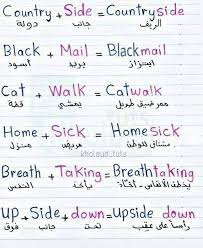 Country + Side = Countryside
دولة جانب الريف
Black + Mail = Blackmail
أسود بريد ابتزاز
Cat + Walk = Catwalk
قط يمشي ممر ضيق طويل
Home + Sick = Homesick
منزل مريض مشتاق للوطن
kholoud_tuta
Breath + Taking = Breathtaking
التنفس يأخذ يخطف الأنفاس - أخّاذ
Up + Side + down = Upside down
فوق جانب تحت رأساً على عقب